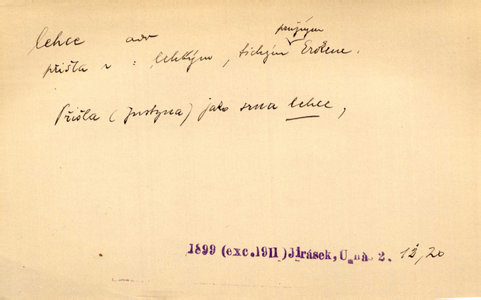 lehce adv
pružným
přišla r : lehkým, tichým krokem.
Přišla (Justyna) jako srna lehce,
1899 (exc.1911) Jirásek, U nás 2. 12, 20